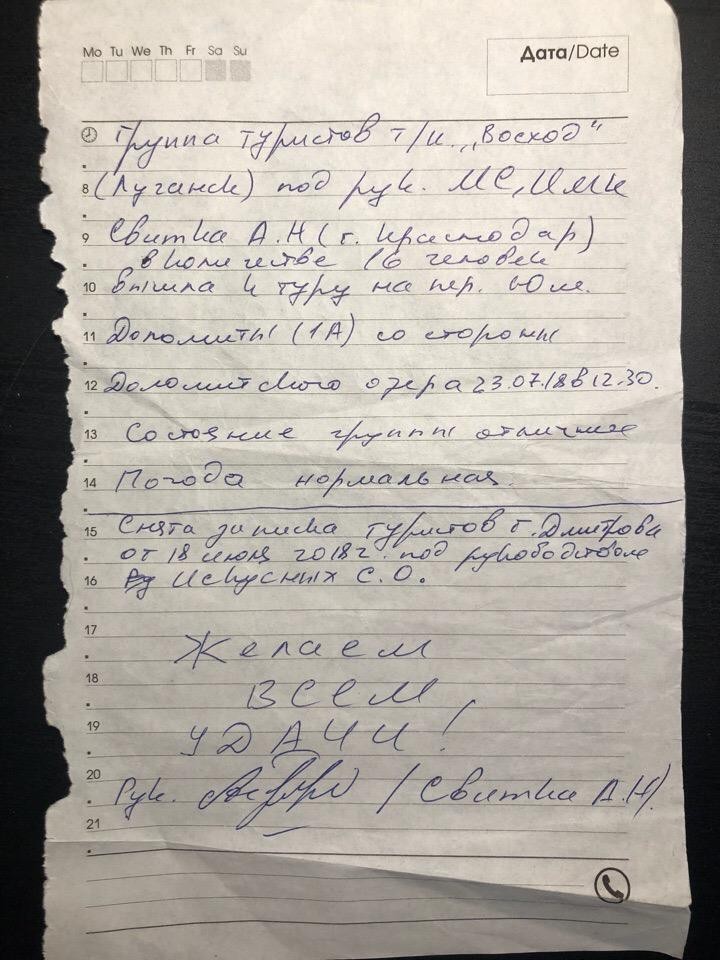 Mo Tu We Th Fr Sa Su
Дата/Date
Группа туристов т/к. „Восход"
8 (Луганск) под рук. МС,
9 Свитка А.Н (г. Краснодар)
в количестве 16 человек
10 вышла к туру на пер. Юж.
11 Доломиты (1А) со стороны
12 Доломитского озера 23.07.18 в 12.30.
13 Состояние группы отличное
14 Погода нормальная.
15 Снята записка туристов г. Дмитрова
от 18 июля 2018 г. под руководством
16 Искусных С.О.
17 Желаем
18 ВСЕМ
19 УДАЧИ!
20 Рук. / Свитка А.Н).
21